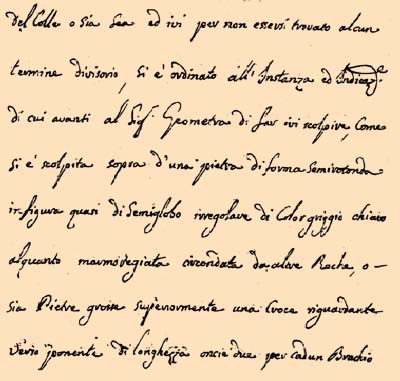 del Colle o sia Sea ed ivi per non essersi trovato alcun
termine divisorio, si è ordinato all'Instanza ed Indicaz.e
di cui avanti al Sig.r Geometra di far ivi scolpire, Come
si è scolpita sopra d'una pietra di forma Semirotonda
in figura quasi di Semiglobo irregolare di Color griggio chiaro
alquanto marmoregiata circondata da altre Roche, o –
sia Pietre grosse superiormente una Croce riguardante
verso ponente di longhezza oncie due per cadun Brachio